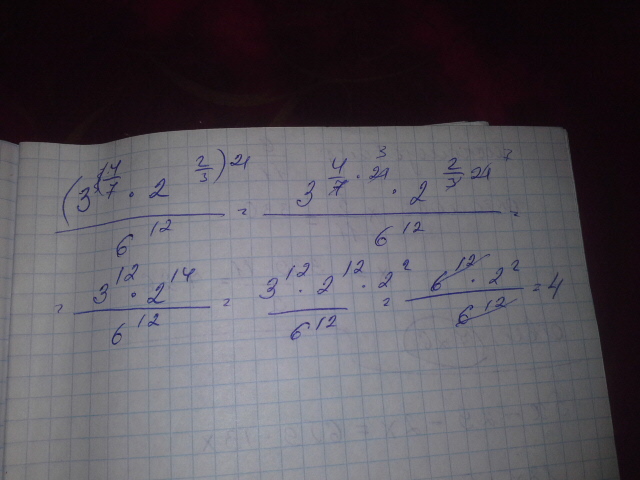 (3^{4/7} · 2^{2/3})^{21} / 6^{12} = 3^{4/7 · 21} · 2^{2/3 · 21} / 6^{12} =
= 3^{12} · 2^{14} / 6^{12} = 3^{12} · 2^{12} · 2^2 / 6^{12} = 6^{12} · 2^2 / 6^{12} = 4